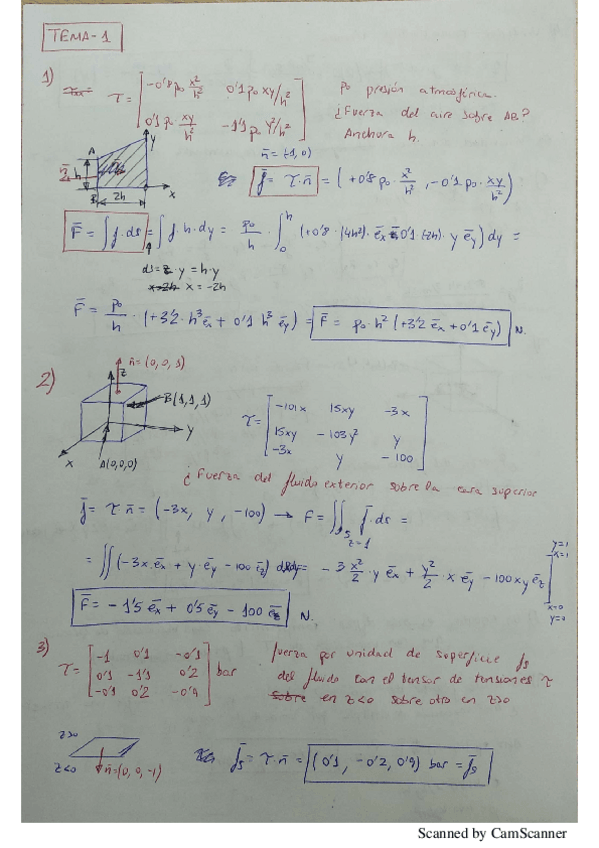 TEMA-1
1) τ = [ -0'8 p₀ x²/h² 0'1 p₀ xy/h² p₀ presión atmosférica.
0'1 p₀ xy/h² -1'1 p₀ y²/h² ] ¿Fuerza del aire sobre AB?
Anchura h.
A y
h n̄ = (-1, 0)
B 2h x
f̄ = τ · n̄ = ( +0'8 p₀ · x²/h² , -0'1 p₀ · xy/h² )
F̄ = ∫ f · ds = ∫ f · h · dy = p₀/h · ∫₀ʰ (+0'8 · (4h²) · ēx 0'1 (2h) · y ēy) dy =
ds = z · y = h · y
x = -2h
F̄ = p₀/h · (+3'2 · h³ ēx + 0'1 h³ ēy) = F̄ = p₀ · h² (+3'2 ēx + 0'1 ēy) N.
2) n̄ = (0, 0, 1)
z
B(1,1,1)
y
x A(0,0,0)
τ = [ -101x 15xy -3x
15xy -103y² y
-3x y -100 ]
¿Fuerza del fluido exterior sobre la cara superior
f̄ = τ · n̄ = (-3x, y, -100) → F = ∬s f̄ · ds =
z=1
= ∬ (-3x · ēx + y · ēy - 100 ēz) dxdy = -3 x²/2 · y ēx + y²/2 · x ēy - 100 xy ēz
y=1
x=1
x=0
y=0
F̄ = -1'5 ēx + 0'5 ēy - 100 ēz N.
3) τ = [ -1 0'1 -0'1
0'1 -1'1 0'2
-0'1 0'2 -0'9 ] bar
fuerza por unidad de superficie fs
del fluido con el tensor de tensiones τ
en z<0 sobre otro en z>0
z>0
z<0 n̄ = (0, 0, -1)
f̄s = τ · n̄ = (0'1, -0'2, 0'9) bar = f̄s
Scanned by CamScanner